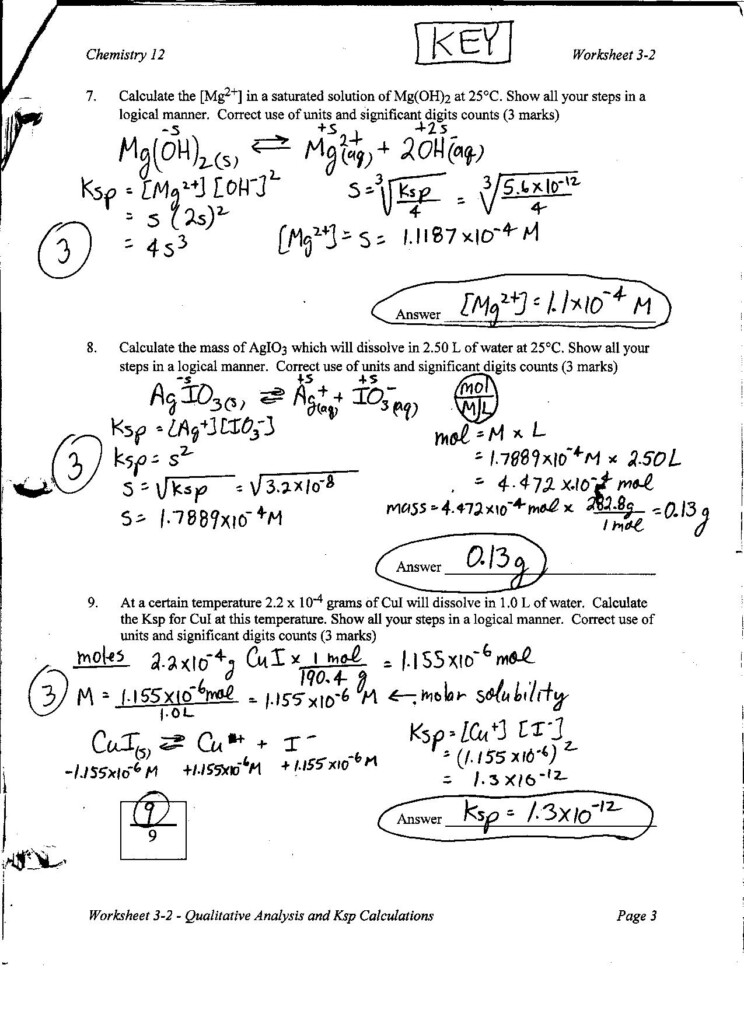 KEY
Chemistry 12 Worksheet 3-2
7. Calculate the [Mg²⁺] in a saturated solution of Mg(OH)₂ at 25°C. Show all your steps in a
logical manner. Correct use of units and significant digits counts (3 marks)
-s +s +2s
Mg(OH)₂(s) ⇌ Mg²⁺(aq) + 2OH⁻(aq)
Ksp = [Mg²⁺] [OH⁻]²
= s (2s)²
= 4s³
3
s = ³√(Ksp/4) = ³√(5.6 x 10⁻¹²/4)
[Mg²⁺] = s = 1.1187 x 10⁻⁴ M
Answer [Mg²⁺] = 1.1 x 10⁻⁴ M
8. Calculate the mass of AgIO₃ which will dissolve in 2.50 L of water at 25°C. Show all your
steps in a logical manner. Correct use of units and significant digits counts (3 marks)
-s +s +s
AgIO₃(s) ⇌ Ag⁺(aq) + IO₃⁻(aq)
mol
M/L
Ksp = [Ag⁺][IO₃⁻]
Ksp = s²
3
s = √Ksp = √3.2 x 10⁻⁸
s = 1.7889 x 10⁻⁴ M
mol = M x L
= 1.7889 x 10⁻⁴ M x 2.50 L
= 4.472 x 10⁻⁴ mol
mass = 4.472 x 10⁻⁴ mol x 282.8g/1 mol = 0.13 g
Answer 0.13 g
9. At a certain temperature 2.2 x 10⁻⁴ grams of CuI will dissolve in 1.0 L of water. Calculate
the Ksp for CuI at this temperature. Show all your steps in a logical manner. Correct use of
units and significant digits counts (3 marks)
moles 2.2 x 10⁻⁴ g CuI x 1 mol/190.4 g = 1.155 x 10⁻⁶ mol
3 M = 1.155 x 10⁻⁶ mol/1.0 L = 1.155 x 10⁻⁶ M ← molar solubility
CuI(s) ⇌ Cu⁺ + I⁻
-1.155x10⁻⁶ M +1.155x10⁻⁶ M +1.155 x10⁻⁶ M
Ksp = [Cu⁺] [I⁻]
= (1.155 x10⁻⁶)²
= 1.3 x 10⁻¹²
Answer Ksp = 1.3 x 10⁻¹²
9
9
Worksheet 3-2 - Qualitative Analysis and Ksp Calculations Page 3